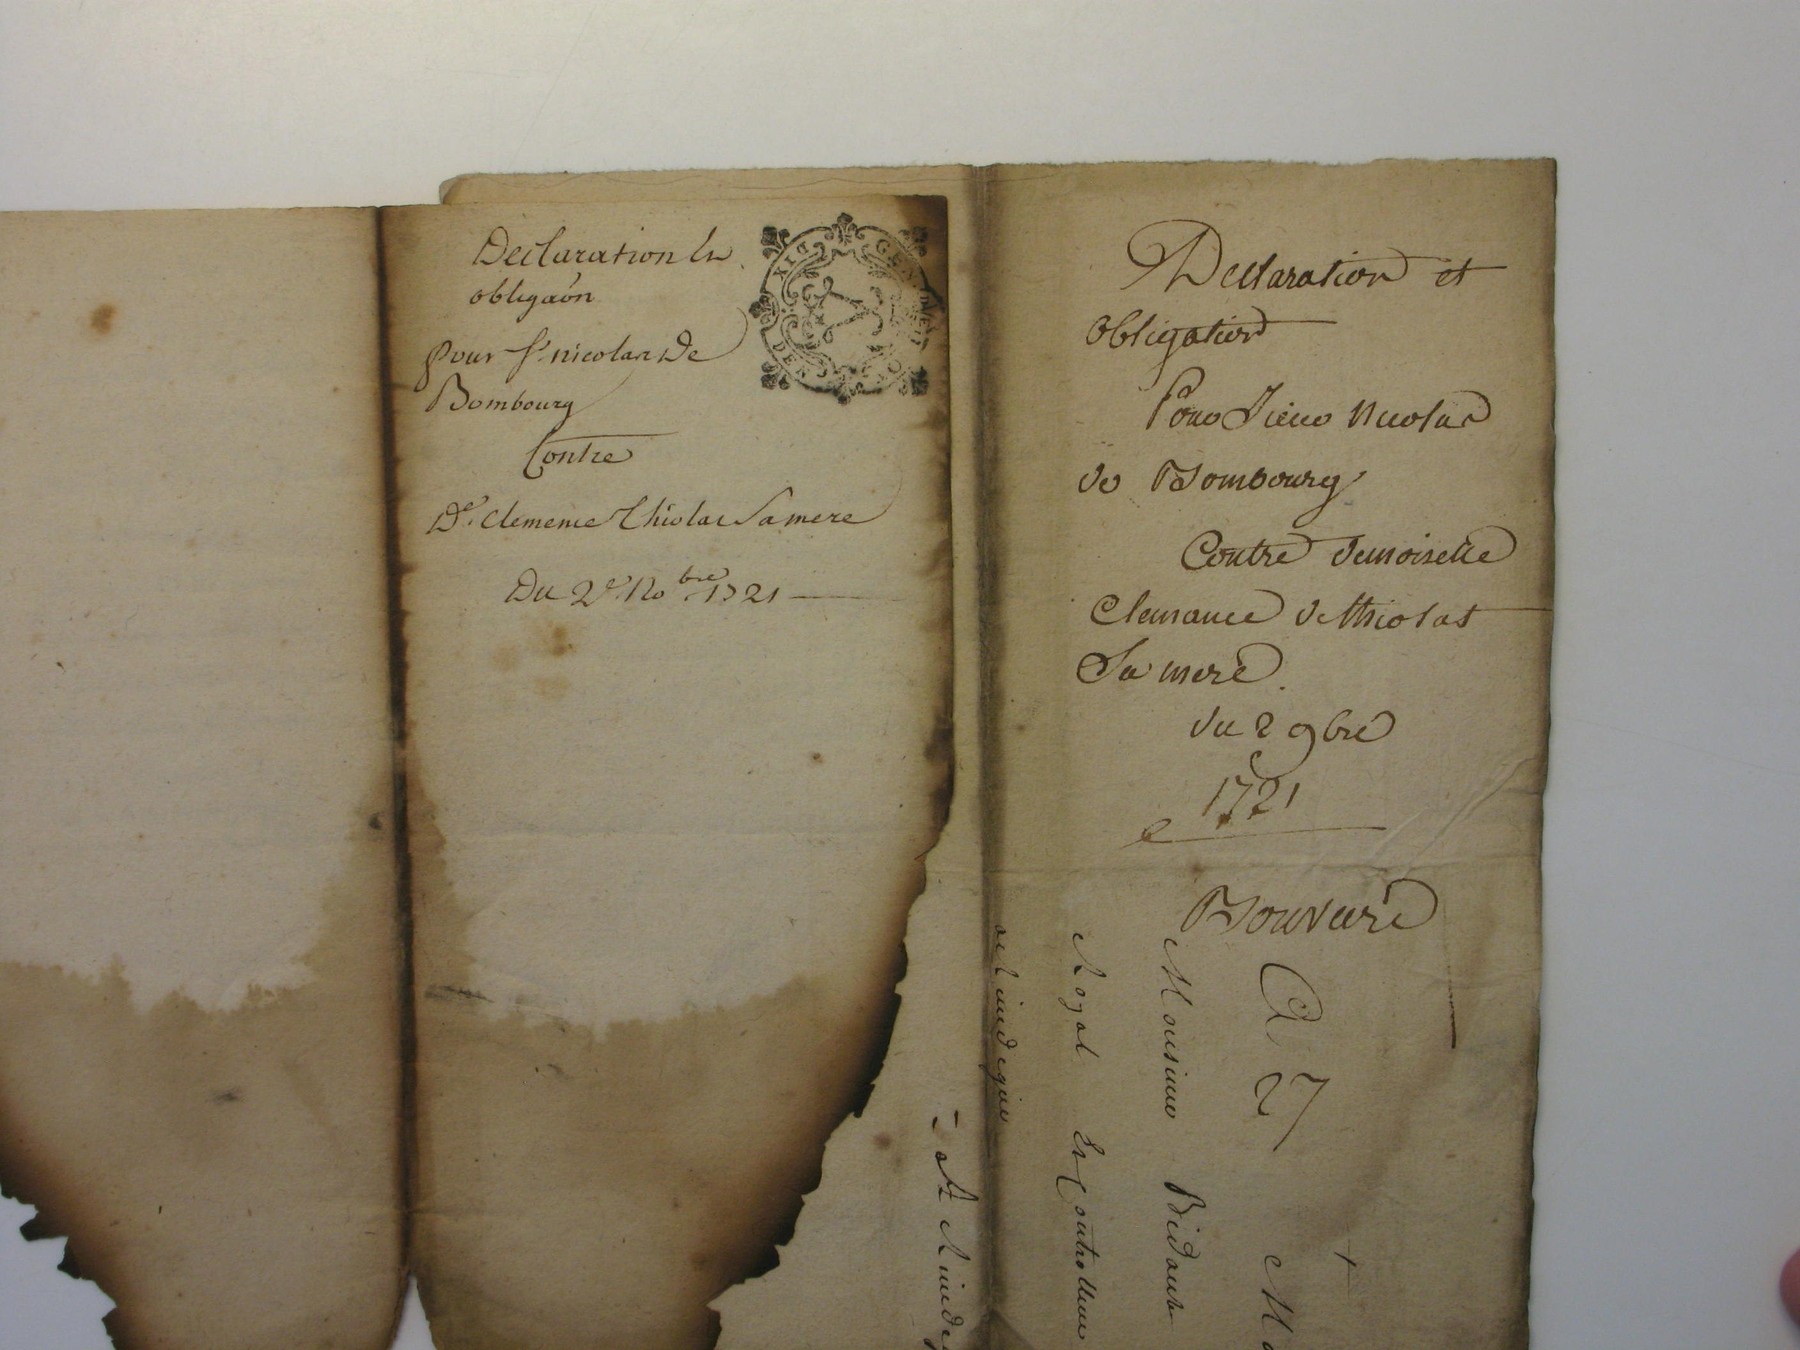 Declaration Et
obligaõn
pour Sr. nicolas De
Bombourg
Contre
De. Clemence Thiolas Sa mere
Du 2e. No bre 1721
SIX
GEN
DEN
Declaration et
obligation
Pour Sieur Nicolas
de Bombourg
Contre demoiselle
Clemance de Thiolas
Sa mere
du 2 9bre
1721
Bouveire
Monsieur Bidault
Royal Et Controlleur